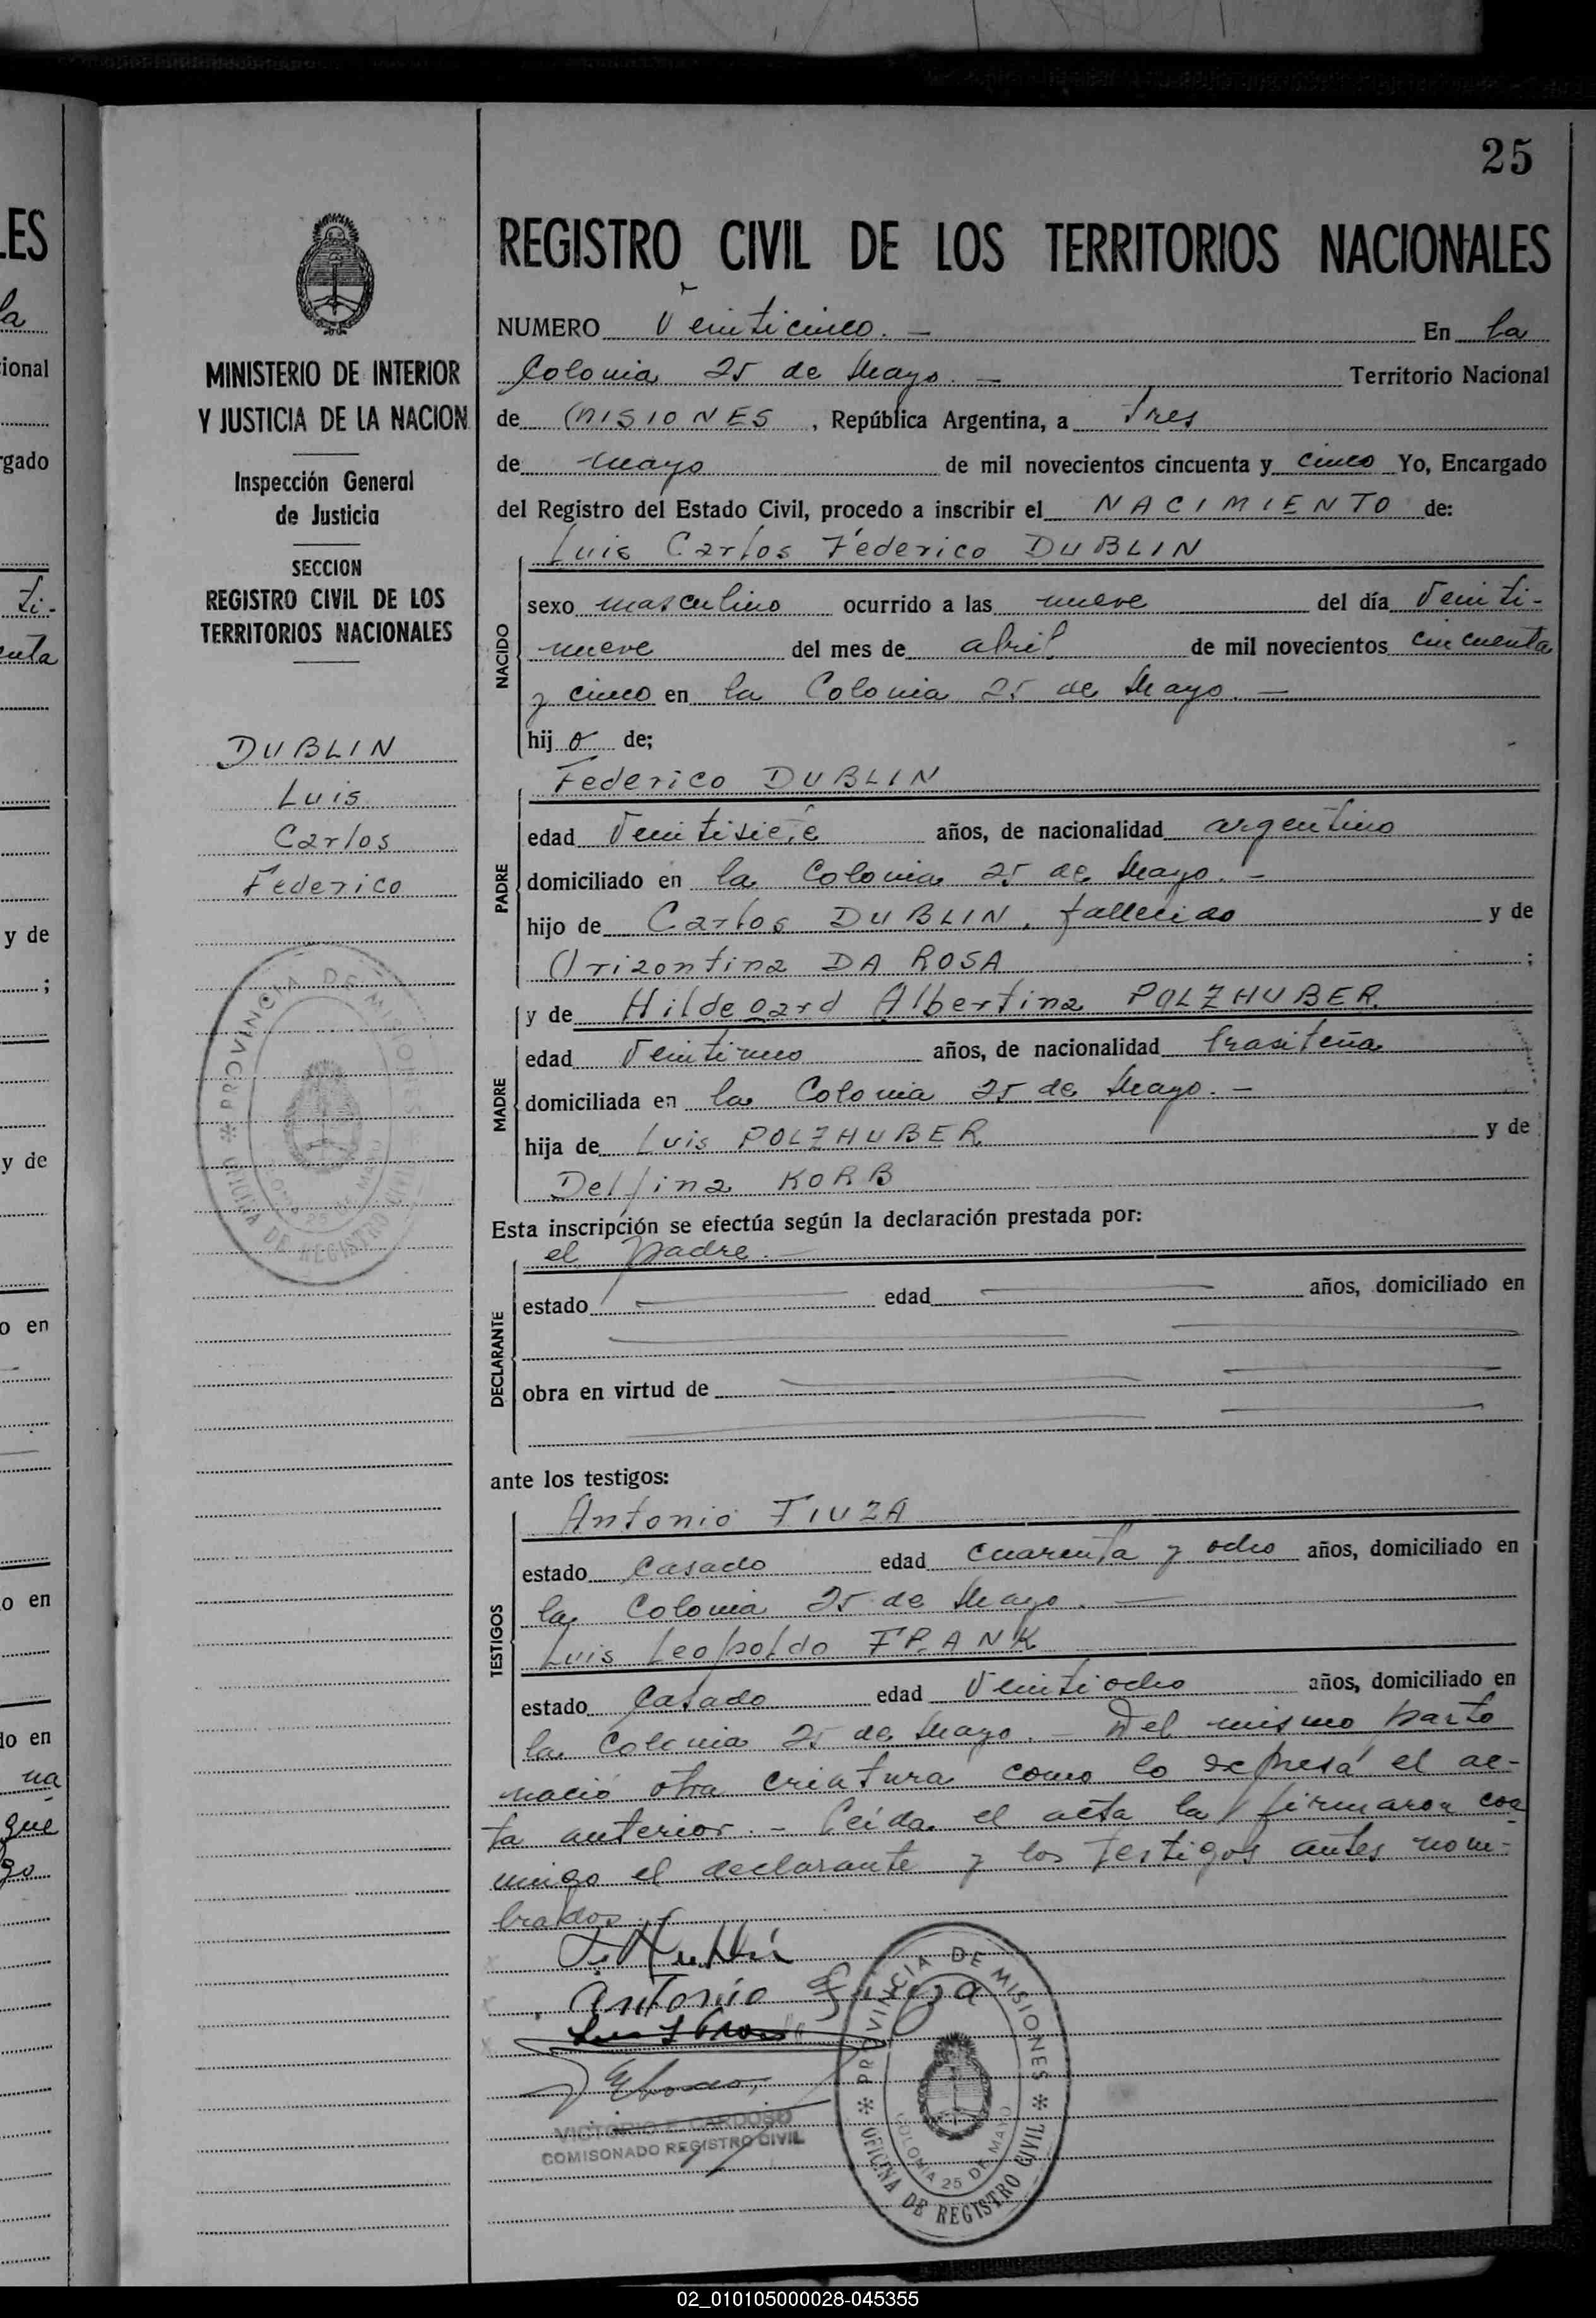 25
REGISTRO CIVIL DE LOS TERRITORIOS NACIONALES
MINISTERIO DE INTERIOR
Y JUSTICIA DE LA NACION
Inspección General
de Justicia
SECCION
REGISTRO CIVIL DE LOS
TERRITORIOS NACIONALES
DUBLIN
Luis
Carlos
Federico
PROVINCIA DE MISIONES
OFICINA DE REGISTRO CIVIL
COLONIA 25 DE MAYO
NUMERO Veinticinco. — En la
Colonia 25 de Mayo. — Territorio Nacional
de MISIONES, República Argentina, a Tres
de mayo de mil novecientos cincuenta y cinco Yo, Encargado
del Registro del Estado Civil, procedo a inscribir el NACIMIENTO de:
Luis Carlos Federico DUBLIN
NACIDO
sexo masculino ocurrido a las nueve del día Veinti-
nueve del mes de abril de mil novecientos cincuenta
y cinco en la Colonia 25 de Mayo. —
hijo de;
Federico DUBLIN
PADRE
edad Veintisiete años, de nacionalidad argentino
domiciliado en la Colonia 25 de Mayo. —
hijo de Carlos DUBLIN, fallecido y de
Orizontina DA ROSA ;
y de Hildegard Albertina POLZHUBER
MADRE
edad Veintiuno años, de nacionalidad brasileña
domiciliada en la Colonia 25 de Mayo. —
hija de Luis POLZHUBER y de
Delfina KORB
Esta inscripción se efectúa según la declaración prestada por:
el padre. —
DECLARANTE
estado — edad — años, domiciliado en
obra en virtud de —
ante los testigos:
Antonio FIUZA
TESTIGOS
estado Casado edad cuarenta y ocho años, domiciliado en
la Colonia 25 de Mayo. —
Luis Leopoldo FRANK
estado Casado edad Veintiocho años, domiciliado en
la Colonia 25 de Mayo. — Del mismo parto
nació otra criatura como lo expresa el ac-
ta anterior. — Leída el acta la firmaron con
migo el declarante y los testigos antes nom-
brados. —
Antonio Fiuza
VICTORIO E. CARDOSO
COMISONADO REGISTRO CIVIL
PROVINCIA DE MISIONES
OFICINA DE REGISTRO CIVIL
COLONIA 25 DE MAYO
02_010105000028-045355